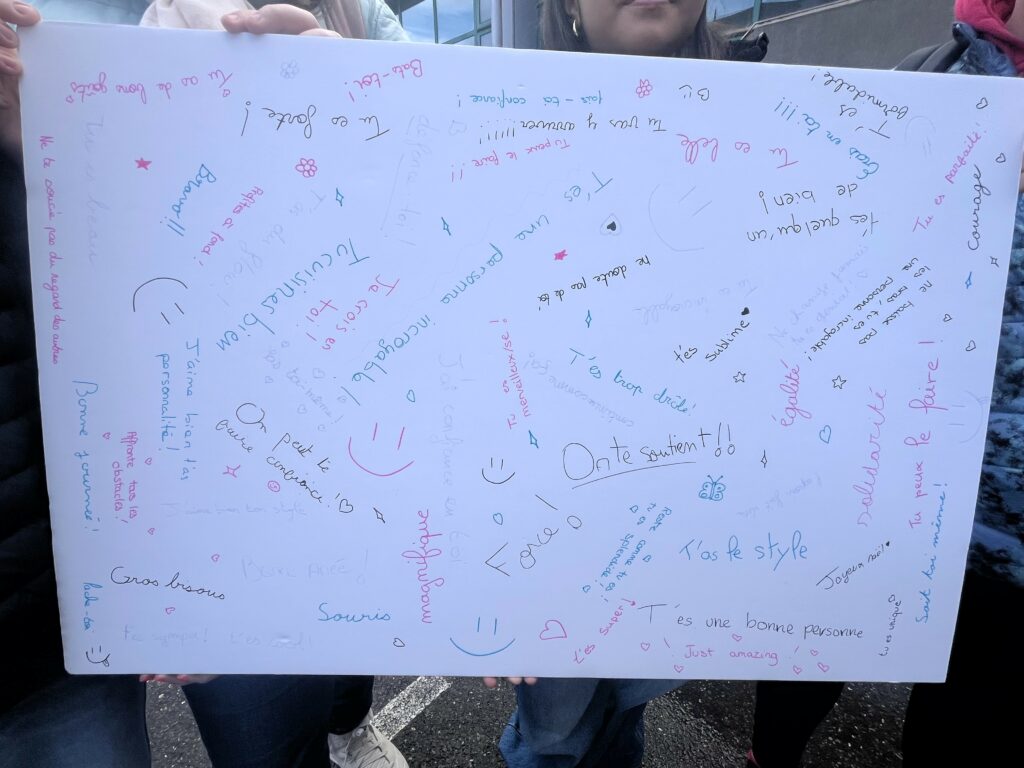 Tu as de bons goûts
Bats-toi !
fais-toi confiance !
B
T'es
formidable !
Tu es forte !
Tu vas y arriver !!!!!
Crois en toi !!!
Tu peux le faire !!
Tu es belle
Tu es parfaite !
Courage
Ne te soucie pas du regard des autres
Tu es beau
Bravo !!
t'es quelqu'un
de bien !
T'es
une
personne
incroyable !
ne doute pas de toi
Tu cuisines bien
Je crois en
toi !
ne baisse pas
les bras, t'es une
personne incroyable !
t'es
sublime
Tu es
merveilleux/se !
T'es trop drôle !
égalité
solidarité
Tu peux le faire !
J'aime bien t'as
personnalité !
Bonne journée !
Affronte tas les
obstacles !
On peut te
faire confiance !
J'ai confiance en toi
On te soutient !!
J'aime bien ton style
magnifique
Force !
Reste comme tu es
tu es splendide !
T'as le style
Joyeux noël
Soit toi même !
Gros bisous
Souris
T'es
super !
T'es une bonne personne
tu es unique
Just amazing
t'es sympa ! t'es cool !